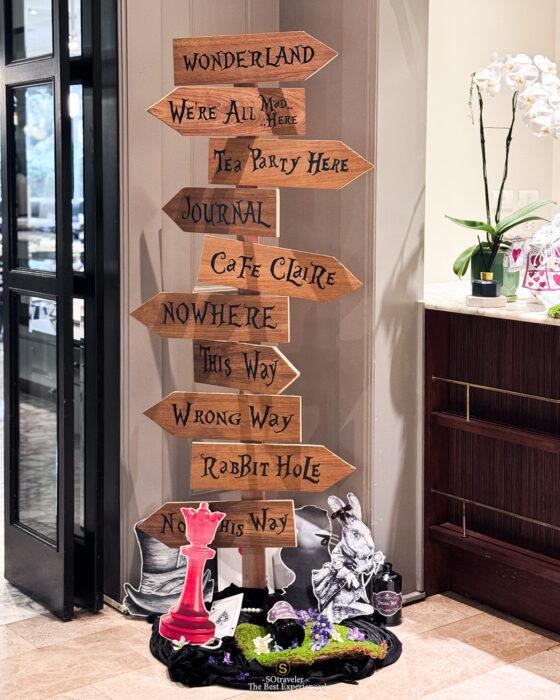 WONDERLAND
WE'RE ALL MAD..
..HERE
TEA PARTY HERE
JOURNAL
CAFE CLAIRE
NOWHERE
THIS WAY
WRONG WAY
RABBIT HOLE
THIS WAY
S
-SOtraveler-
The Best Experienced